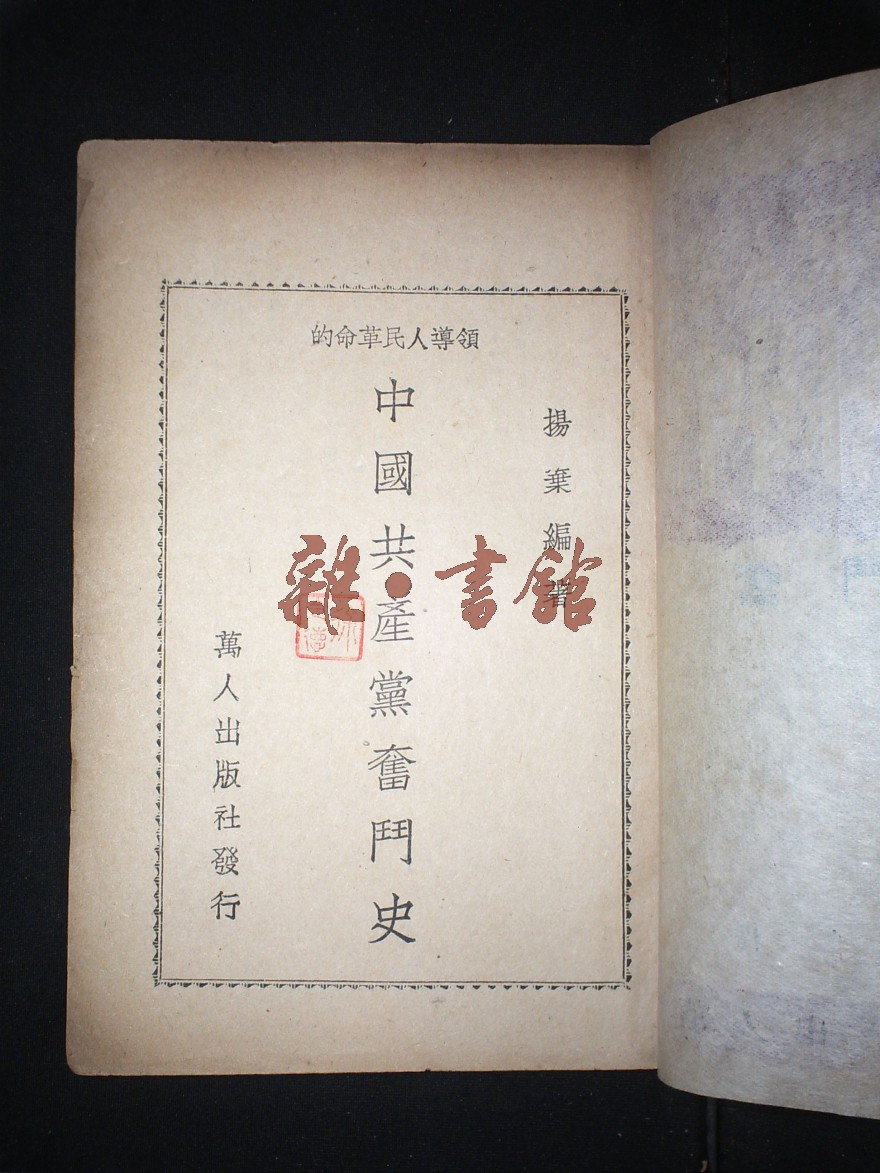 領導人民革命的
揚棄編著
中國共產黨奮鬥史
萬人出版社發行
雜·書館